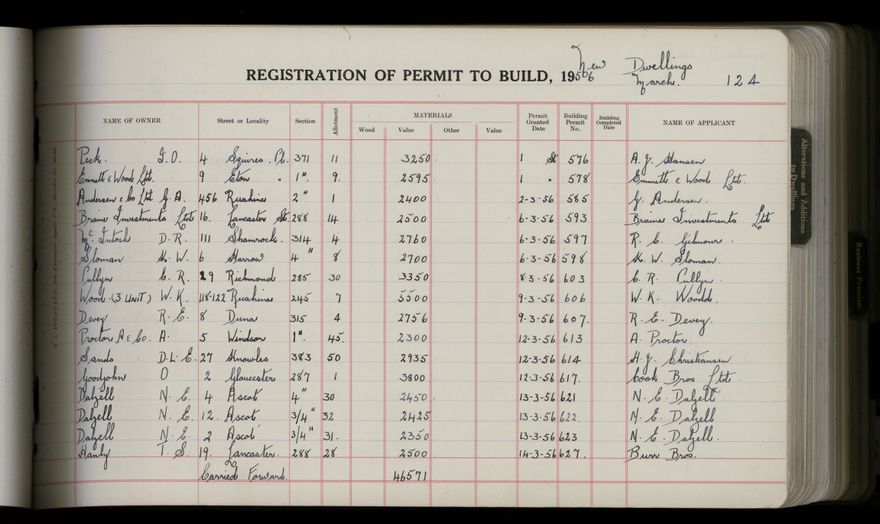 New Dwellings
REGISTRATION OF PERMIT TO BUILD, 1956 March. 124
NAME OF OWNER Street or Locality Section Allotment MATERIALS Permit Granted Date Building Permit No. Building Completed Date NAME OF APPLICANT
Wood Value Other Value
Peck. I.O. 4 Squires Pl. 371 11 3250 1 St 576 A. J. Hansen
Emmett & Wood Ltd. 9 Eton " 1". 9. 2595 1 " 578 Emmett & Wood Ltd.
Andersen & Co Ltd G. A. 456 Ruahine 2" 1 2400 2-3-56 585 G. Andersen.
Braine Investments Ltd 16. Lancaster St 288 14 2500 6-3-56 593 Braine Investments Ltd
McIntosh D. R. 111 Shamrock. 314 4 2760 6-3-56 597 R. C. Gilmour.
Sloman K. W. 6 Harrow 4" 8 2700 6-3-56 598 K. W. Sloman.
Cullyn C. R. 29 Richmond 285 30 3350 8-3-56 603 C. R. Cullyn.
Wood (3 Unit) W. K. 118-122 Ruahine 245 7 5500 9-3-56 606 W. K. Woods.
Devey R. E. 8 Duna 315 4 2756 9-3-56 607. R. E. Devey.
Proctor A & Co. A. 5 Windsor 1". 45. 2300 12-3-56 613 A. Proctor.
Sands D. L. E. 27 Knowles 383 50 2935 12-3-56 614 H. J. Christiansen
Goodjohn O 2 Gloucester 287 1 3800 12-3-56 617. Cook Bros Ltd.
Dalzell N. E. 4 Ascot 4" 30 2450 13-3-56 621 N. E. Dalzell
Dalzell N. E. 12. Ascot 3/4" 32 2425 13-3-56 622. N. E. Dalzell
Dalzell N. E. 2 Ascot 3/4" 31. 2350 13-3-56 623 N. E. Dalzell.
Hanly T. S. 19. Lancaster. 288 28 2500 14-3-56 627. Burr Bros.
Carried Forward. 46571
Alterations and Additions to Dwellings
Business Premises